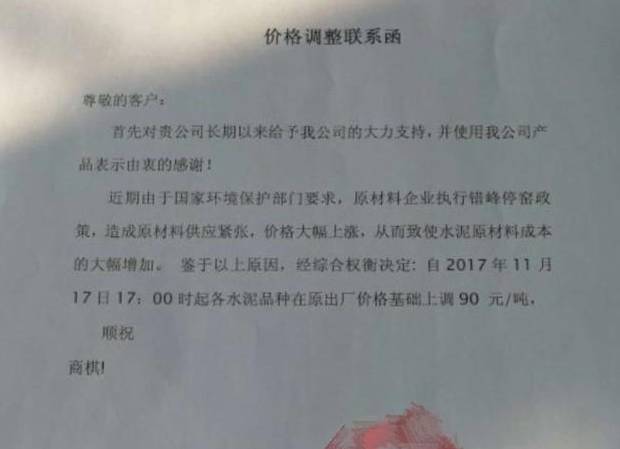 价格调整联系函
尊敬的客户：
首先对贵公司长期以来给予我公司的大力支持，并使用我公司产
品表示由衷的感谢！
近期由于国家环境保护部门要求，原材料企业执行错峰停窑政
策，造成原材料供应紧张，价格大幅上涨，从而致使水泥原材料成本
的大幅增加。 鉴于以上原因，经综合权衡决定：自2017年11月
17日17：00时起各水泥品种在原出厂价格基础上调90 元/吨，
顺祝
商棋!